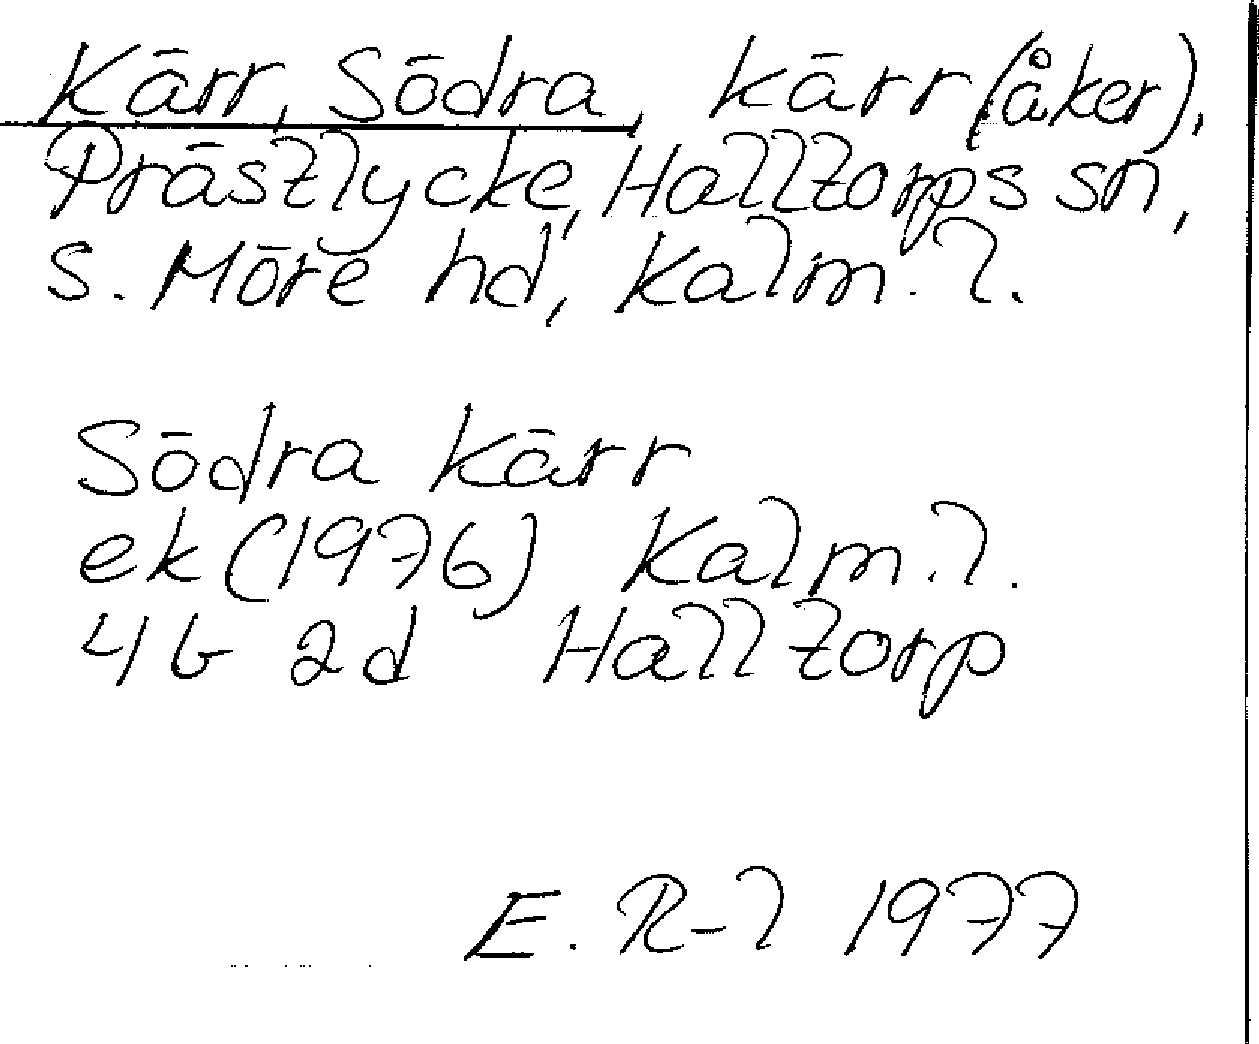 Kärr, Södra, kärr (åker),
Prästlycke, Halltorps sn,
S. Möre hd, Kalm. l.
Södra kärr
ek (1976) Kalm. l.
4G 2d Halltorp
E. R-l 1977